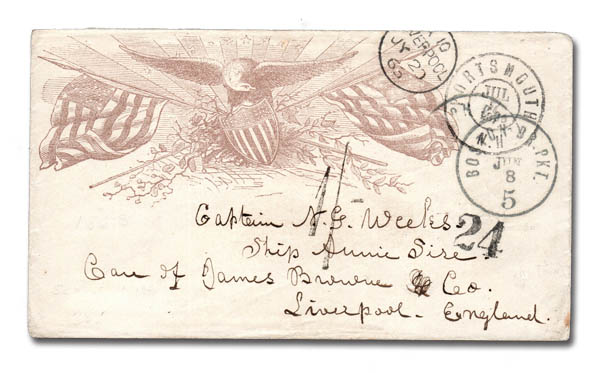 LIVERPOOL
JY 20
65
PORTSMOUTH
JUL
N.H.
BOS. BR. PKT.
8
5
24
1/-
Captain N. G. Weeks
Ship Annie Sise
Care of James Browne & Co.
Liverpool - England.